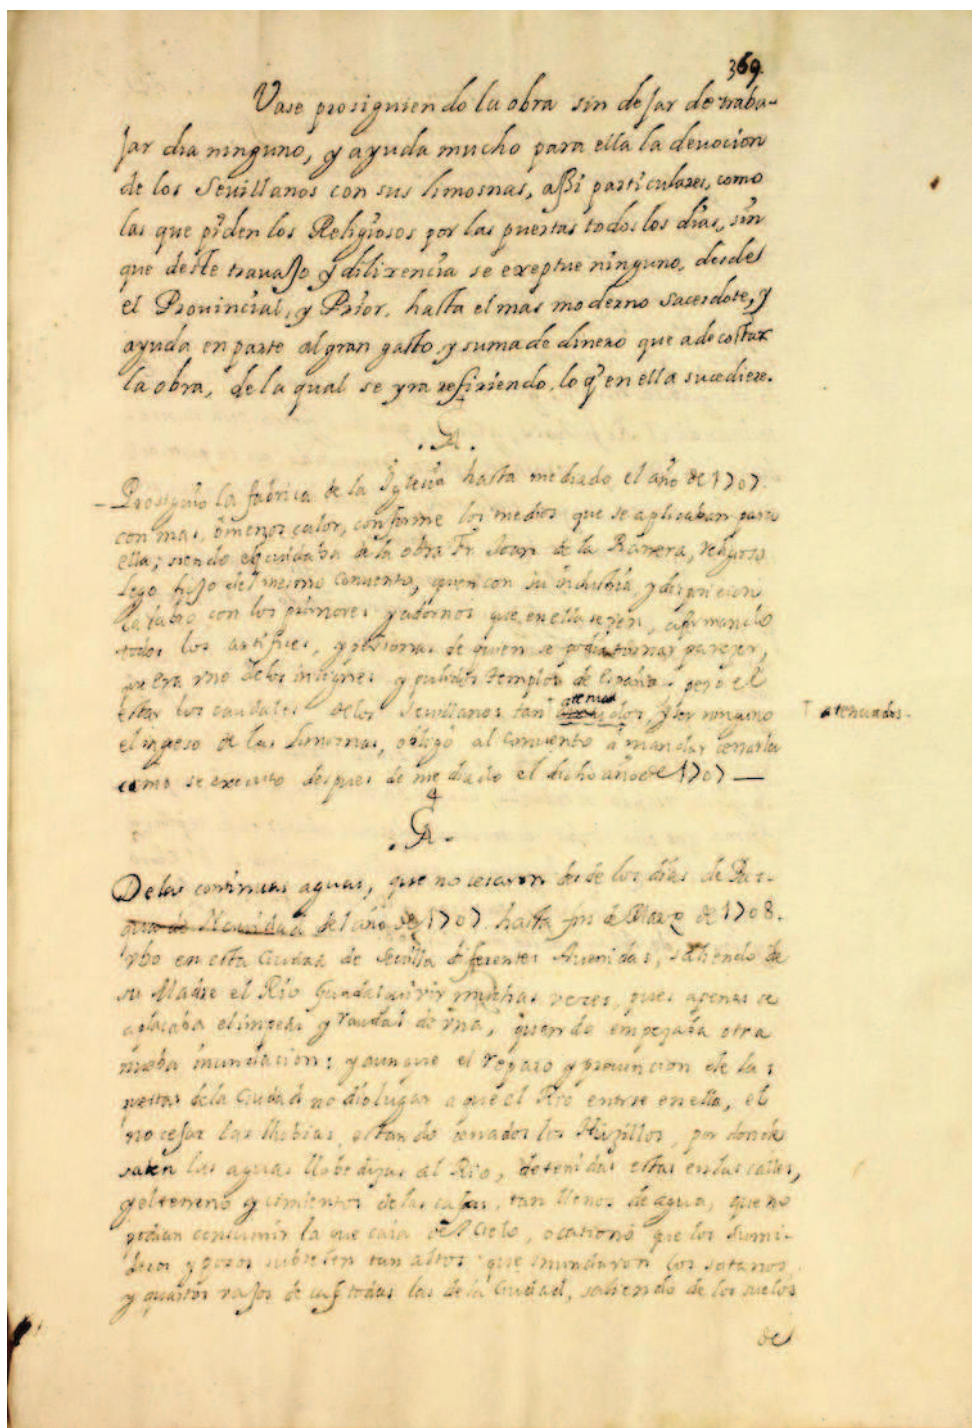 369.
Vase prosiguiendo la obra sin dejar de traba-
jar dia ninguno, y ayuda mucho para ella la deuocion
de los Seuillanos con sus limosnas, assi particulares, como
las que piden los Religiosos por las puertas todos los dias, sin
que deste travajo y dilixencia se exeptue ninguno, desde
el Prouincial, y Prior, hasta el mas moderno sacerdote, y
ayuda en parte al gran gasto, y suma de dinero que a de costar
la obra, de la qual se yra refiriendo, lo q̃ en ella sucediere.
Prosiguio la fabrica de la Yglesia hasta mediado el año de 1707.
con mas, o menos calor, conforme los medios que se aplicaban para
ella; siendo el cuidaba de la obra Fr. Joan de la Barrera, religioso
lego hijo del mesmo conuento, quien con su industria, y disposicion
la labro con los primores y adornos que en ella se ven, afirmando
todos los artifices, y personas de quien se podia tomar parezer,
que era vno de los insignes y pulidos templos de España. pero el
estar los caudales de los Seuillanos tan atenuados, y ser ninguno
atenuados.
el ingreso de las limosnas, obligò al conuento à mandar cerrarla
como se executo despues de mediado el dicho año de 1707
De las continuas aguas, que no cesaron desde los dias de Pas-
qua de Nauidad del año de 1707. hasta fin de Marzo de 1708.
vbo en esta Ciudad de Seuilla diferentes Auenidas, saliendo de
su Madre el Rio Guadalquivir muchas vezes, pues apenas se
aplacaba el impetu y raudal de vna, quando empezaba otra
nueba inundacion: y aunque el reparo y preuencion de las
puertas de la Ciudad no dio lugar a que el Rio entrase en ella, el
no cesar las llubias, estando cerrados los Husillos, por donde
salen las aguas llobedizas al Rio, detenidas estas en las calles,
y el terreno y cimientos de las casas, tan llenos de agua, que no
podian consumir la que caia del Cielo, ocasionò que los sumi-
deros y pozos subiesen tan altos que inundaron los sotanos,
y quartos vajos de casi todas las de la Ciudad, saliendo de los suelos
de